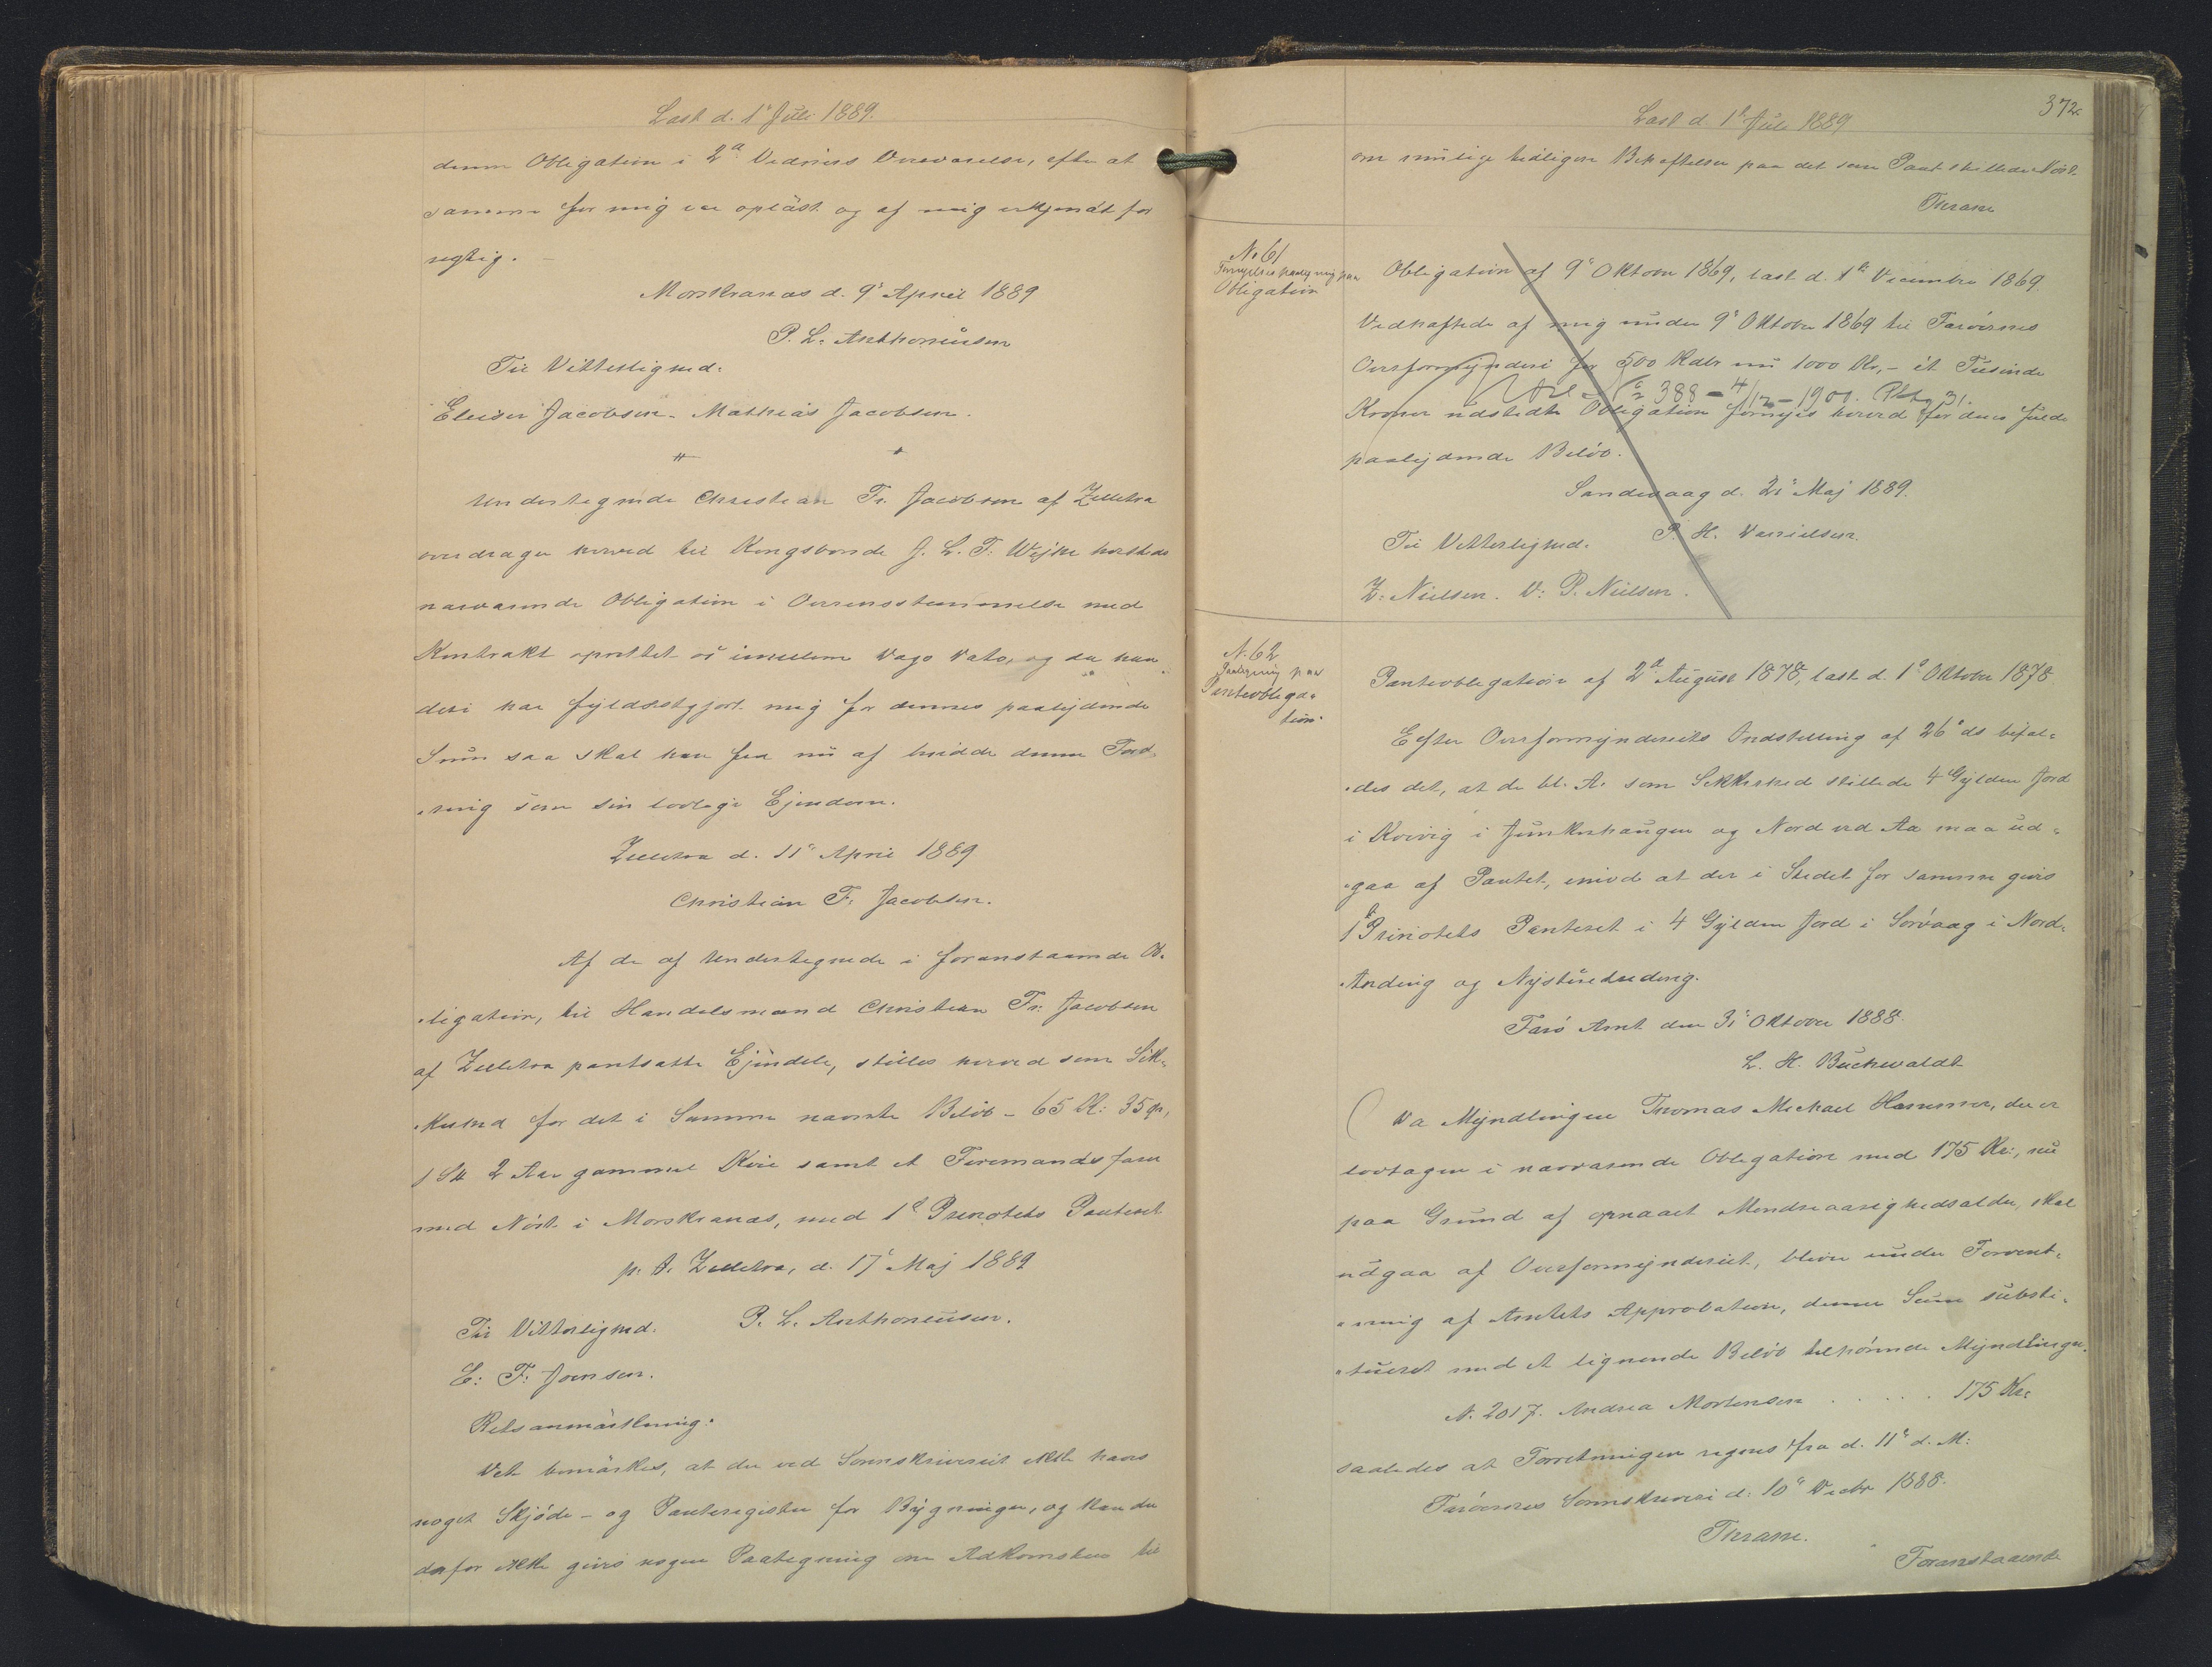 Læst d. 1e Juli 1889.
denne Obligation i 2de Vidners Overværelse, efter at
samme for mig var oplæst og af mig erkjendt for
rigtig. –
Morskranæs d. 9e April 1889
P. L. Anthoniusen
Til Vitterlighed:
Elieser Jacobsen. Mathias Jacobsen.
Undertegnede Christian Fr. Jacobsen af Zelletræ
overdrager herved til Kongsbonde J. L. T. Wejhe hersteds
nærværende Obligation i Overensstemmelse med
Kontrakt oprettet os imellem Dags Dato, og da han
deri har fyldestgjort mig for dennes paalydende
Sum saa skal han fra nu af besidde denne Ford-
ring som sin lovlige Ejendom.
Zelletræ d. 11e April 1889
Christian F. Jacobsen.
Af de af Undertegnede i foranstaaende Ob-
ligation, til Handelsmand Christian Fr. Jacobsen
af Zelletræ pantsatte Ejendele, stilles herved som Sik-
kerhed for det i Samme nævnte Beløb – 65 Kr. 35 Ør,
1 Stk 2 Aar gammel Kvie samt et Firemandsfar
med Nøst i Morskranæs, med 1e Prioritets Panteret
p. t. Zelletræ, d. 17e Maj 1889
Til Vitterlighed: P. L. Anthoniusen.
E. F. Joensen.
Retsanmærkning:
Det bemærkes, at der ved Sorenskriveriet ikke haves
noget Skjøde- og Panteregister for Bygninger, og kan der
derfor ikke gives nogen Paategning om Adkomsten til
Læst d 1e Juli 1889
372.
om mulige tidligere Behæftelser paa det som Pant stillede Nøst.
Thrane
N. 61
Fornyelsespaategning paa
Obligation
Obligation af 9e Oktober 1869, læst d. 1e December 1869.
Vedhæftede af mig under 9e Oktober 1869 til Færøernes
Overformynderi for 500 Rdlr nu 1000 Kr, – et Tusinde
388 – 4/12 – 1901. Ptbg 31.
Kroner udstedte Obligation fornyes herved for dens fulde
paalydende Beløb.
Sandevaag d. 21e Maj 1889.
Til Vitterlighed: P. H. Danielsen.
Z. Nielsen. D. P. Nielsen.
N. 62
Paategning paa
Panteobliga-
tion.
Panteobligation af 2de August 1878, læst d. 1e Oktober 1878
Efter Overformynderiets Indstilling af 26e ds bifal-
des det, at de bl. A. som Sikkerhed stillede 4 Gylden Jord
i Kvivig i Junkershaugen og Nord ved Aa maa ud-
gaa af Pantet, imod at der i Stedet for samme gives
1te Prioritets Panteret i 4 Gylden Jord i Sørvaag i Nord-
Da Myndlingen Thomas Michael Hammer, der er
Færø Amt den 31e Oktober 1888.
L. H. Buchwaldt
lodtagen i nærværende Obligation med 175 Kr., nu
paa Grund af opnaaet Mindreaarighedsalder, skal
udgaa af Overformynderiet, bliver under Forvent-
ning af Amtets Approbation, denne Sum substi-
tueret med et lignende Beløb tilhørende Myndlingen
N. 2017. Andrea Mortensen . . . . . 175 Kr.
saaledes at Forretningen regnes fra d. 11e d. M.
Færøernes Sorenskriveri d. 10e Decbr 1888.
Thrane.
Foranstaaende